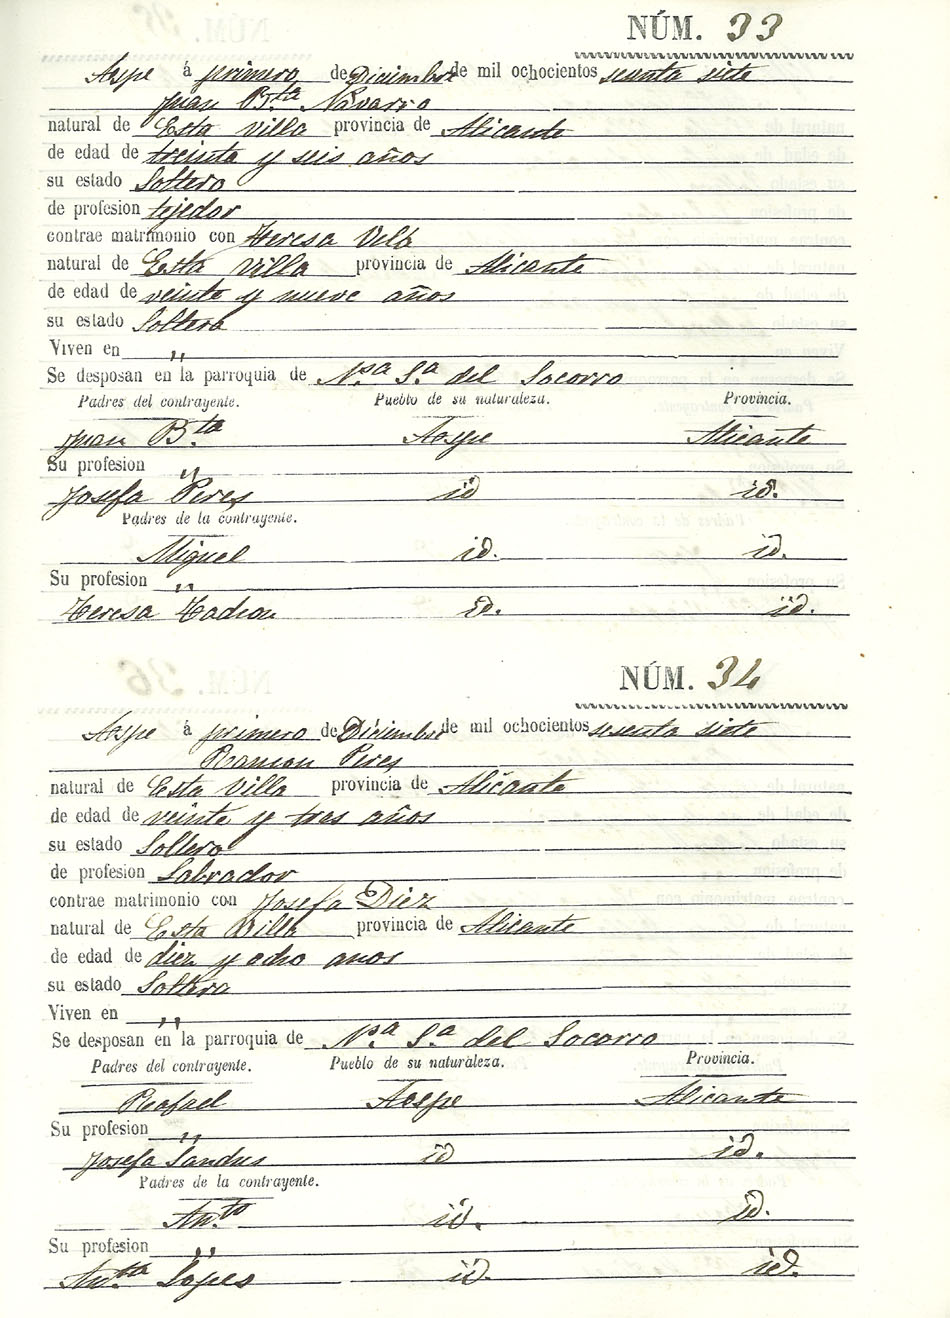 NÚM. 33
Aspe á primero de Diciembre de mil ochocientos sesenta siete
Juan B.ta Navarro
natural de Esta Villa provincia de Alicante
de edad de treinta y seis años
su estado Soltero
de profesion tejedor
contrae matrimonio con Teresa Velá
natural de Esta Villa provincia de Alicante
de edad de veinte y nueve años
su estado Soltera
Viven en "
Se desposan en la parroquia de N.sa S.a del Socorro
Padres del contrayente. Pueblo de su naturaleza. Provincia.
Juan B.ta Aspe Alicante
Su profesion "
Josefa Peres id id.
Padres de la contrayente.
Miguel id. id.
Su profesion "
Teresa id. id.
NÚM. 34
Aspe á primero de Diciembre de mil ochocientos sesenta siete
Ramon Peres
natural de Esta Villa provincia de Alicante
de edad de veinte y tres años
su estado Soltero
de profesion Labrador
contrae matrimonio con Josefa Diez
natural de Esta Villa provincia de Alicante
de edad de diez y ocho anos
su estado Soltera
Viven en "
Se desposan en la parroquia de N.sa S.a del Socorro
Padres del contrayente. Pueblo de su naturaleza. Provincia.
Rafael Aspe Alicante
Su profesion "
Josefa id id.
Padres de la contrayente.
Ant.to id. id.
Su profesion "
Ant.ta Lopes id. id.